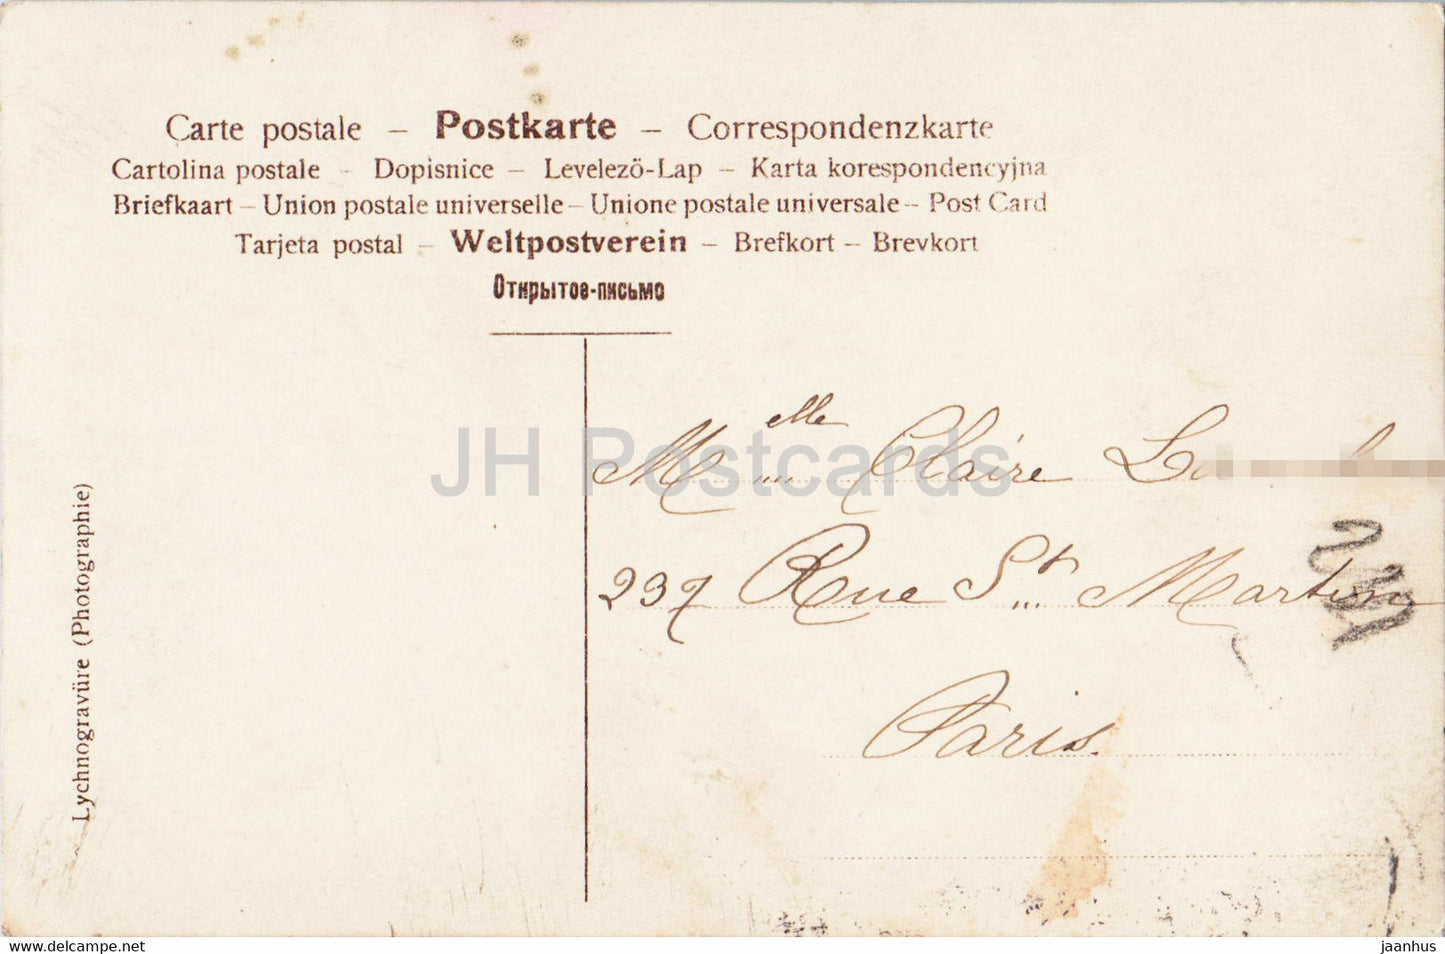 Carte postale – Postkarte – Correspondenzkarte
Cartolina postale – Dopisnice – Levelezö-Lap – Karta korespondencyjna
Briefkaart – Union postale universelle – Unione postale universale – Post Card
Tarjeta postal – Weltpostverein – Brefkort – Brevkort
Открытое-письмо
Lychnogravüre (Photographie)
JH Postcards
Melle Claire
237 Rue St Martin
Paris.
hippostcard.com/store/jaanhus-post-card-home
jaanhus